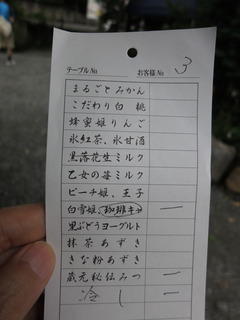 テーブル№ お客様№ 3
まるごとみかん
こだわり白桃
蜂蜜姫りんご
氷紅茶、氷甘酒
黒落花生ミルク
乙女の苺ミルク
ピーチ姫、王子
白雪姫、珈琲キング 一
黒ぶどうヨーグルト
抹茶あずき
きな粉あずき
蔵元秘伝みつ 一
冷し 一